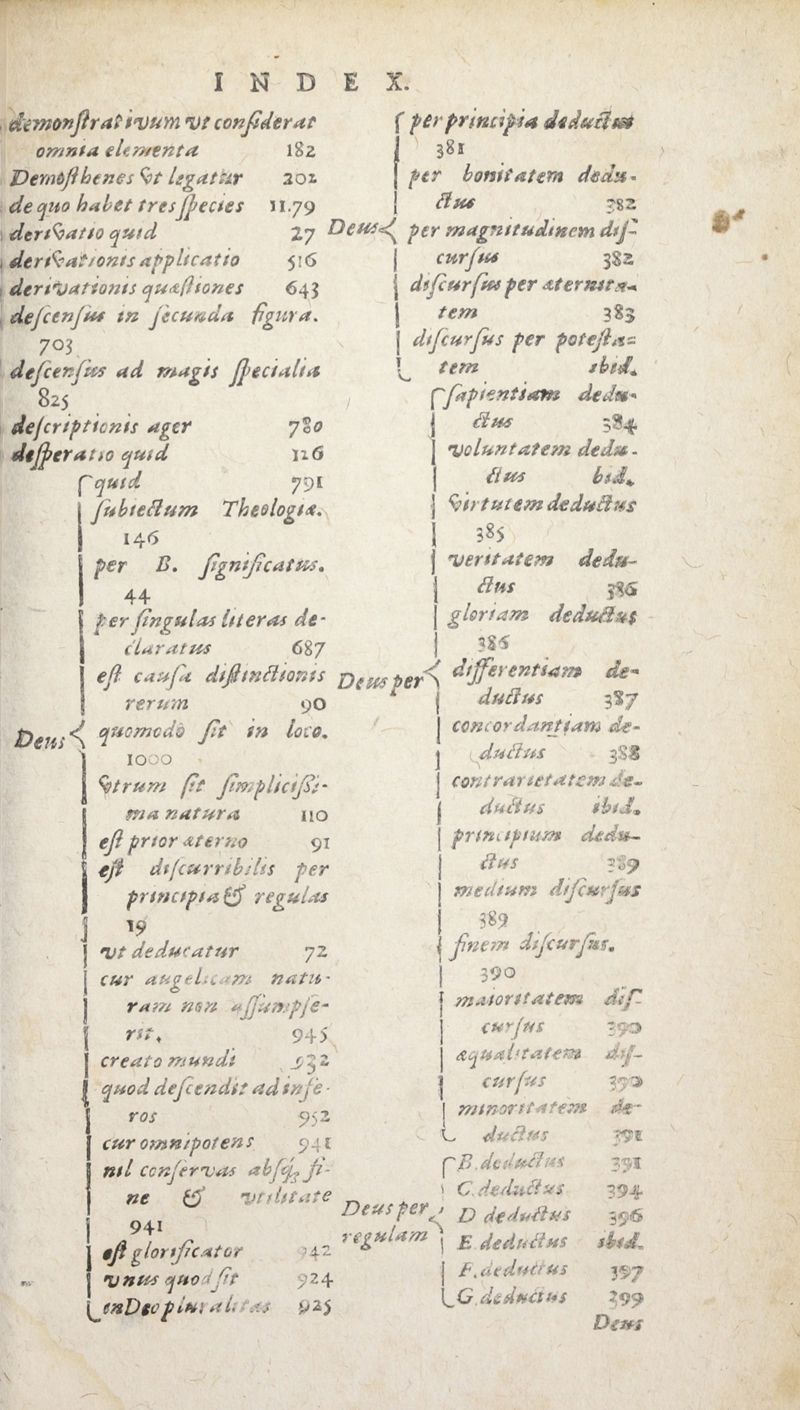 INDEX.
demonſtrativum vt conſiderat
omnia elementa 182
Demoſthenes vt legatur 202
de quo habet tres ſpecies 11.79
derivatio quid 27
derivationis applicatio 516
derivationis quæſtiones 643
deſcenſus in ſecunda figura.
703
deſcenſus ad magis ſpecialia
825
deſcriptionis ager 780
deſperatio quid 126
Deus
quid 791
ſubiectum Theologiæ.
146
per B. ſignificatus.
44
per ſingulas literas de-
claratus 687
eſt cauſa diſtinctionis
rerum 90
quomodo ſit in loco.
1000
vtrum ſit ſimpliciſsi-
ma natura 110
eſt prior æterno 91
eſt diſcurribilis per
principia & regulas
19
vt deducatur 72
cur angelicam natu-
ram non aſſumpſe-
rit. 945
creato mundi 932
quod deſcendit ad infe-
ros 952
cur omnipotens 941
nil conſervas abſq, fi-
ne & vtilitate
941
eſt glorificator 942
vnus quod ſit 924
in Deo pluralitas 925
Deus
per principia deductus
381
per bonitatem dedu-
ctus 382
per magnitudinem diſ-
curſus 382
diſcurſus per æternita-
tem 383
diſcurſus per poteſta-
tem ibid.
Deus per
ſapientiam dedu-
ctus 384
voluntatem dedu-
ctus bid.
virtutem deductus
385
veritatem dedu-
ctus 386
gloriam deductus
386
differentiam de-
ductus 387
concordantiam de-
ductus 388
contrarietatem de-
ductus ibid.
principium dedu-
ctus 389
medium diſcurſus
389
finem diſcurſus.
390
maioritatem diſ-
curſus 390
æqualitatem diſ-
curſus 390
minoritatem de-
ductus 391
Deus per regulam
B. deductus 391
C. deductus 394
D deductus 396
E deductus ibid.
F. deductus 397
G. deductus 399
Deus